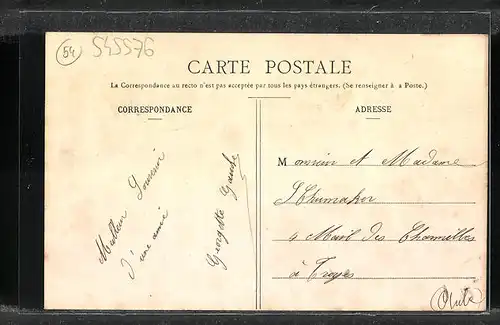 54
545576
CARTE POSTALE
La Correspondance au recto n'est pas acceptée par tous les pays étrangers. (Se renseigner à a Poste.)
CORRESPONDANCE
ADRESSE
Meilleur Souvenir
d'une amie
Georgette
Monsieur et Madame
Schumaker
4 Mail des Charmilles
à Troyes
(Aube)